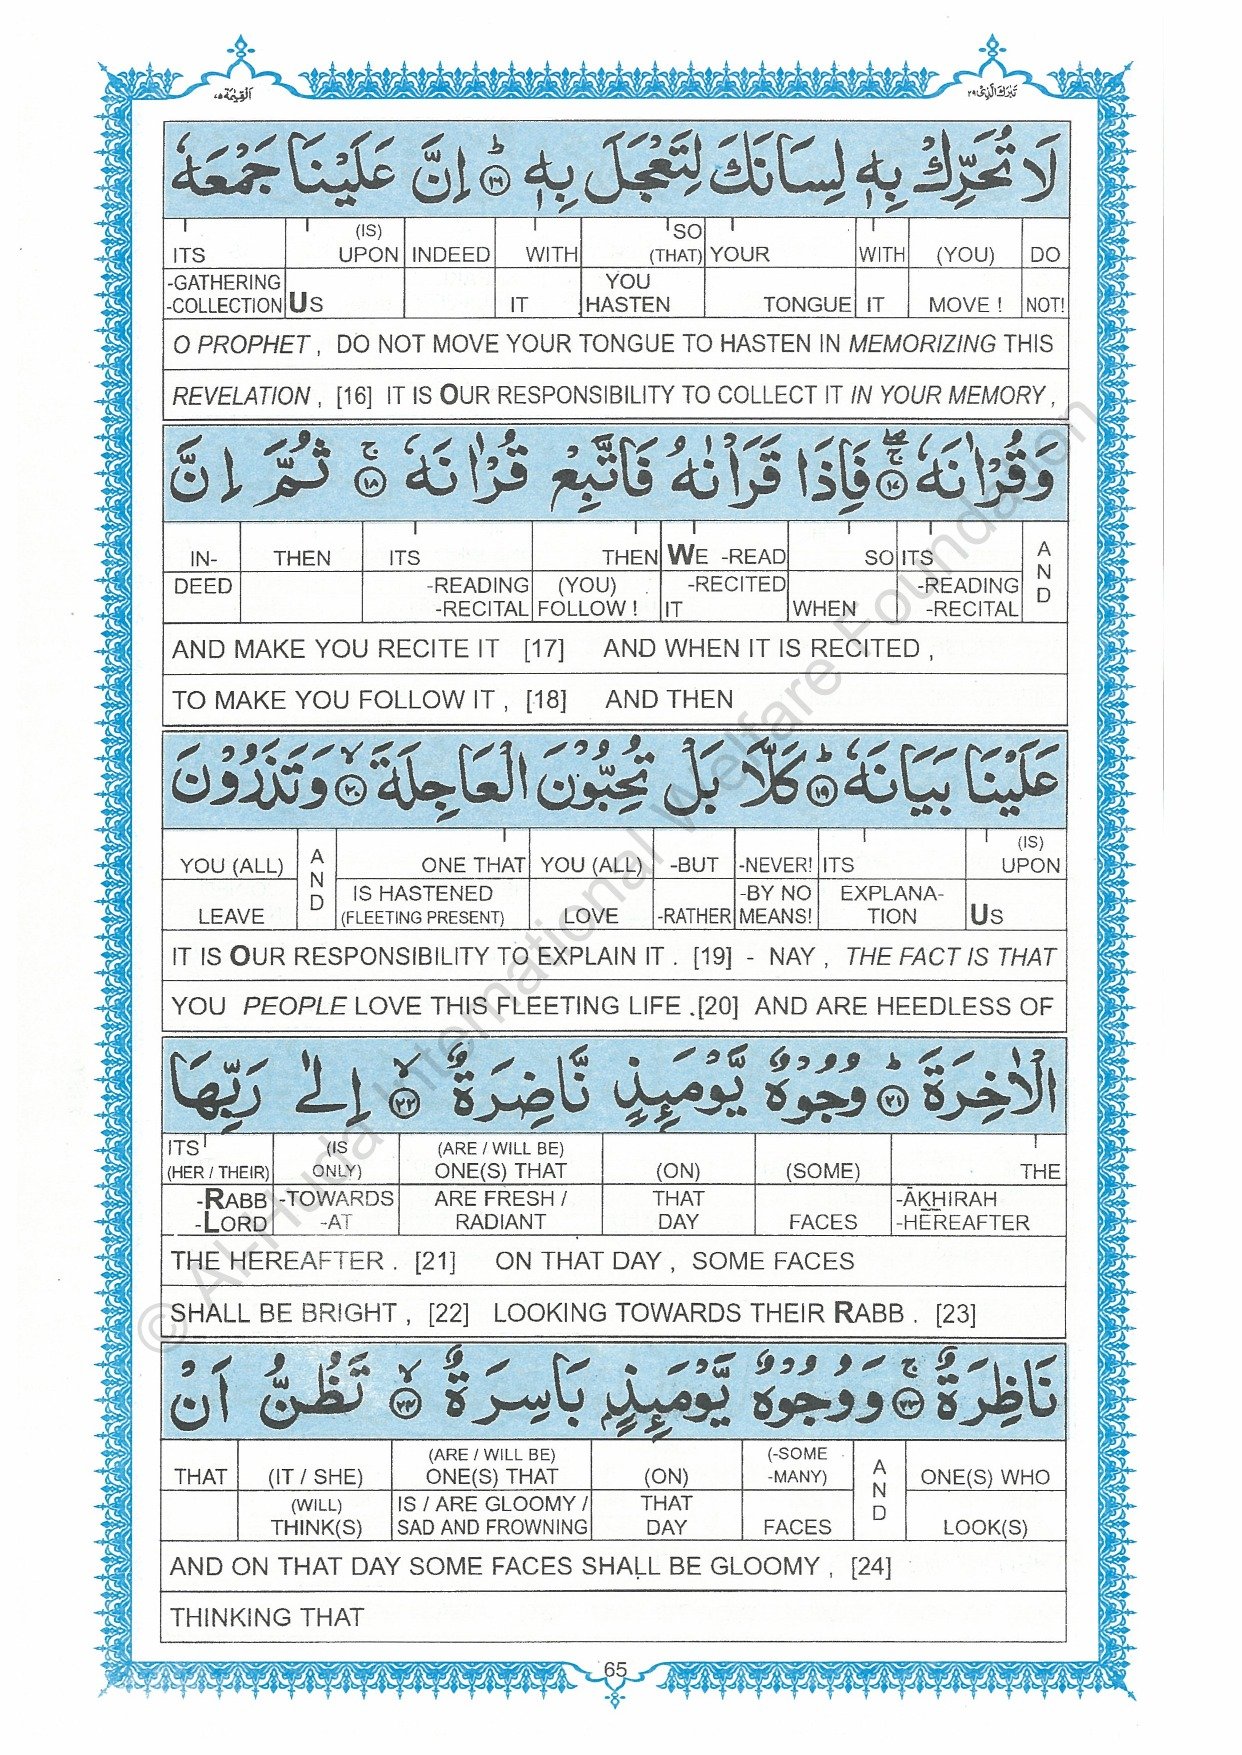 اَلْقِيٰمَة ٧٥
تَبٰرَكَ الَّذِى ٢٩
لَا تُحَرِّكْ بِهٖ لِسَانَكَ لِتَعْجَلَ بِهٖ ؕ ١٦ اِنَّ عَلَيْنَا جَمْعَهٗ
ITS (IS) UPON INDEED WITH SO (THAT) YOUR WITH (YOU) DO
-GATHERING -COLLECTION US IT YOU HASTEN TONGUE IT MOVE ! NOT!
O PROPHET , DO NOT MOVE YOUR TONGUE TO HASTEN IN MEMORIZING THIS
REVELATION , [16] IT IS OUR RESPONSIBILITY TO COLLECT IT IN YOUR MEMORY ,
وَقُرْاٰنَهٗ ۚۖ ١٧ فَاِذَا قَرَاْنٰهُ فَاتَّبِعْ قُرْاٰنَهٗ ۚ ١٨ ثُمَّ اِنَّ
IN- THEN ITS THEN WE -READ SO ITS AND
DEED -READING -RECITAL (YOU) FOLLOW ! -RECITED IT WHEN -READING -RECITAL
AND MAKE YOU RECITE IT [17] AND WHEN IT IS RECITED ,
TO MAKE YOU FOLLOW IT , [18] AND THEN
عَلَيْنَا بَيَانَهٗ ؕ ١٩ كَلَّا بَلْ تُحِبُّوْنَ الْعَاجِلَةَ ۙ ٢٠ وَتَذَرُوْنَ
YOU (ALL) AND ONE THAT YOU (ALL) -BUT -NEVER! ITS (IS) UPON
LEAVE IS HASTENED (FLEETING PRESENT) LOVE -RATHER -BY NO MEANS! EXPLANA- TION US
IT IS OUR RESPONSIBILITY TO EXPLAIN IT . [19] - NAY , THE FACT IS THAT
YOU PEOPLE LOVE THIS FLEETING LIFE .[20] AND ARE HEEDLESS OF
الْاٰخِرَةَ ؕ ٢١ وُجُوْهٌ يَّوْمَىِٕذٍ نَّاضِرَةٌ ۙ ٢٢ اِلٰى رَبِّهَا
ITS (HER / THEIR) (IS ONLY) (ARE / WILL BE) ONE(S) THAT (ON) (SOME) THE
-RABB -LORD -TOWARDS -AT ARE FRESH / RADIANT THAT DAY FACES -ĀKHIRAH -HEREAFTER
THE HEREAFTER . [21] ON THAT DAY , SOME FACES
SHALL BE BRIGHT , [22] LOOKING TOWARDS THEIR RABB . [23]
نَاظِرَةٌ ۚ ٢٣ وَوُجُوْهٌ يَّوْمَىِٕذٍۭ بَاسِرَةٌ ۙ ٢٤ تَظُنُّ اَنْ
THAT (IT / SHE) (ARE / WILL BE) ONE(S) THAT (ON) (-SOME -MANY) AND ONE(S) WHO
(WILL) THINK(S) IS / ARE GLOOMY / SAD AND FROWNING THAT DAY FACES LOOK(S)
AND ON THAT DAY SOME FACES SHALL BE GLOOMY , [24]
THINKING THAT
65
© Al-Huda International Welfare Foundation